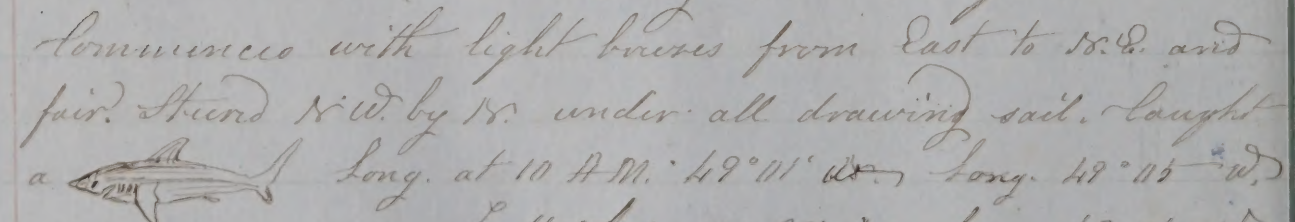 Commences with light breezes from East to N.E. and
fair. Steered N.W. by N. under all drawing sail. Caught
a Long. at 10 A.M. 49° 01' Long. 49° 05 W.